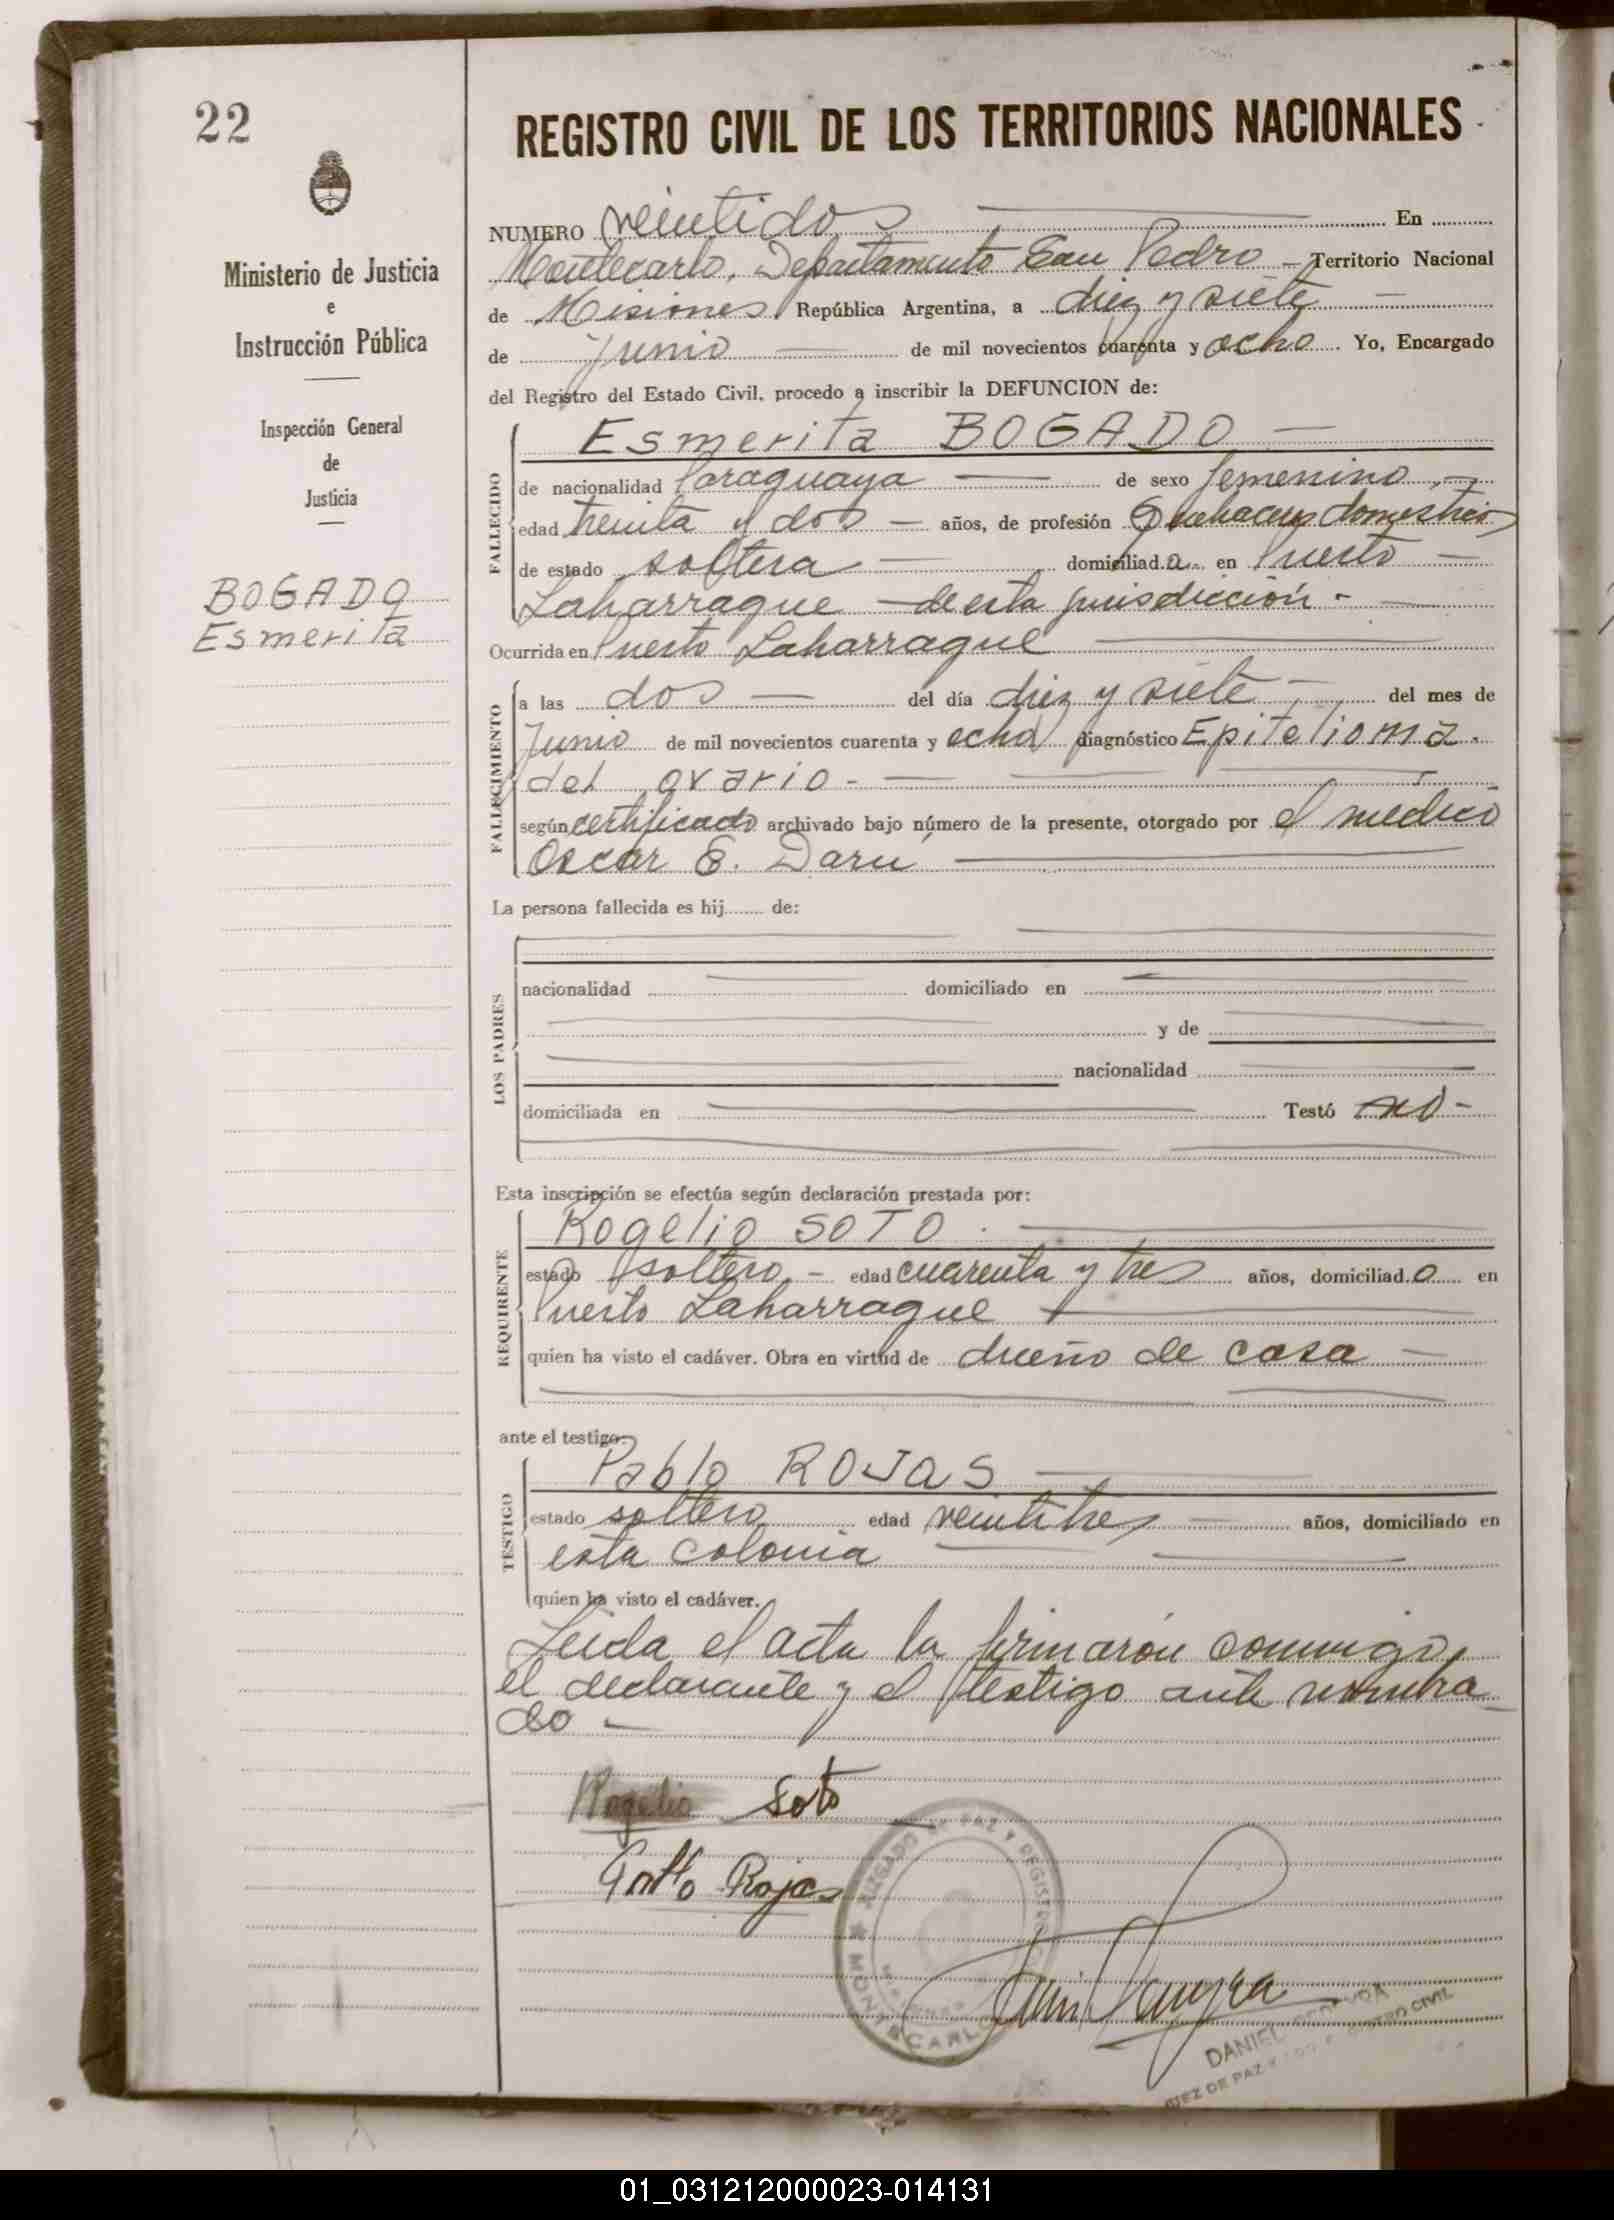 22
Ministerio de Justicia
e
Instrucción Pública
Inspección General
de
Justicia
BOGADO
Esmerita
REGISTRO CIVIL DE LOS TERRITORIOS NACIONALES
NUMERO veintidos En
Montecarlo, Departamento San Pedro Territorio Nacional
de Misiones República Argentina, a diez y siete
de Junio de mil novecientos cuarenta y ocho. Yo, Encargado
del Registro del Estado Civil, procedo a inscribir la DEFUNCION de:
Esmerita BOGADO
FALLECIDO
de nacionalidad Paraguaya de sexo femenino,
edad treinta y dos años, de profesión Quehaceres domesticos
de estado soltera domiciliad.a. en Puerto
Laharrague - de esta jurisdicción -
Ocurrida en Puerto Laharrague
FALLECIMIENTO
a las dos del día diez y siete del mes de
Junio de mil novecientos cuarenta y ocho diagnóstico Epitelioma
del ovario.-
según certificado archivado bajo número de la presente, otorgado por el médico
Oscar E. Daru
La persona fallecida es hij........ de:
LOS PADRES
nacionalidad domiciliado en
y de
nacionalidad
domiciliada en Testó no-
Esta inscripción se efectúa según declaración prestada por:
REQUIRENTE
Rogelio SOTO
estado soltero edad cuarenta y tres años, domiciliad.o en
Puerto Laharrague
quien ha visto el cadáver. Obra en virtud de dueño de casa
ante el testigo:
TESTIGO
Pablo ROJAS
estado soltero edad veintitres años, domiciliado en
esta colonia
quien ha visto el cadáver.
Leida el acta la firmarón conmigo,
el declarante y el testigo ante nombra
do -
Rogelio Soto
Rojas
JUZGADO DE PAZ Y REGISTRO
MONTECARLO
DANIEL
JUEZ DE PAZ REGISTRO CIVIL
01_031212000023-014131